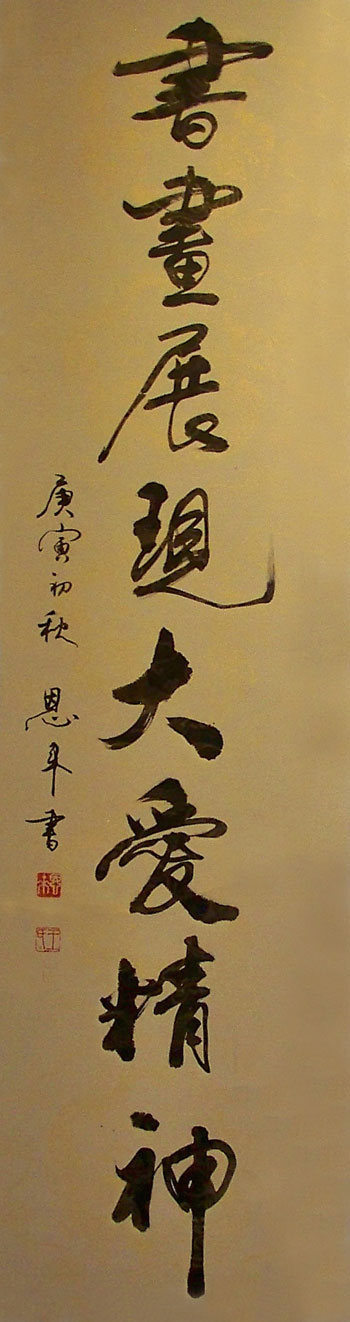 書畫展現大愛精神
庚寅初秋 恩年書